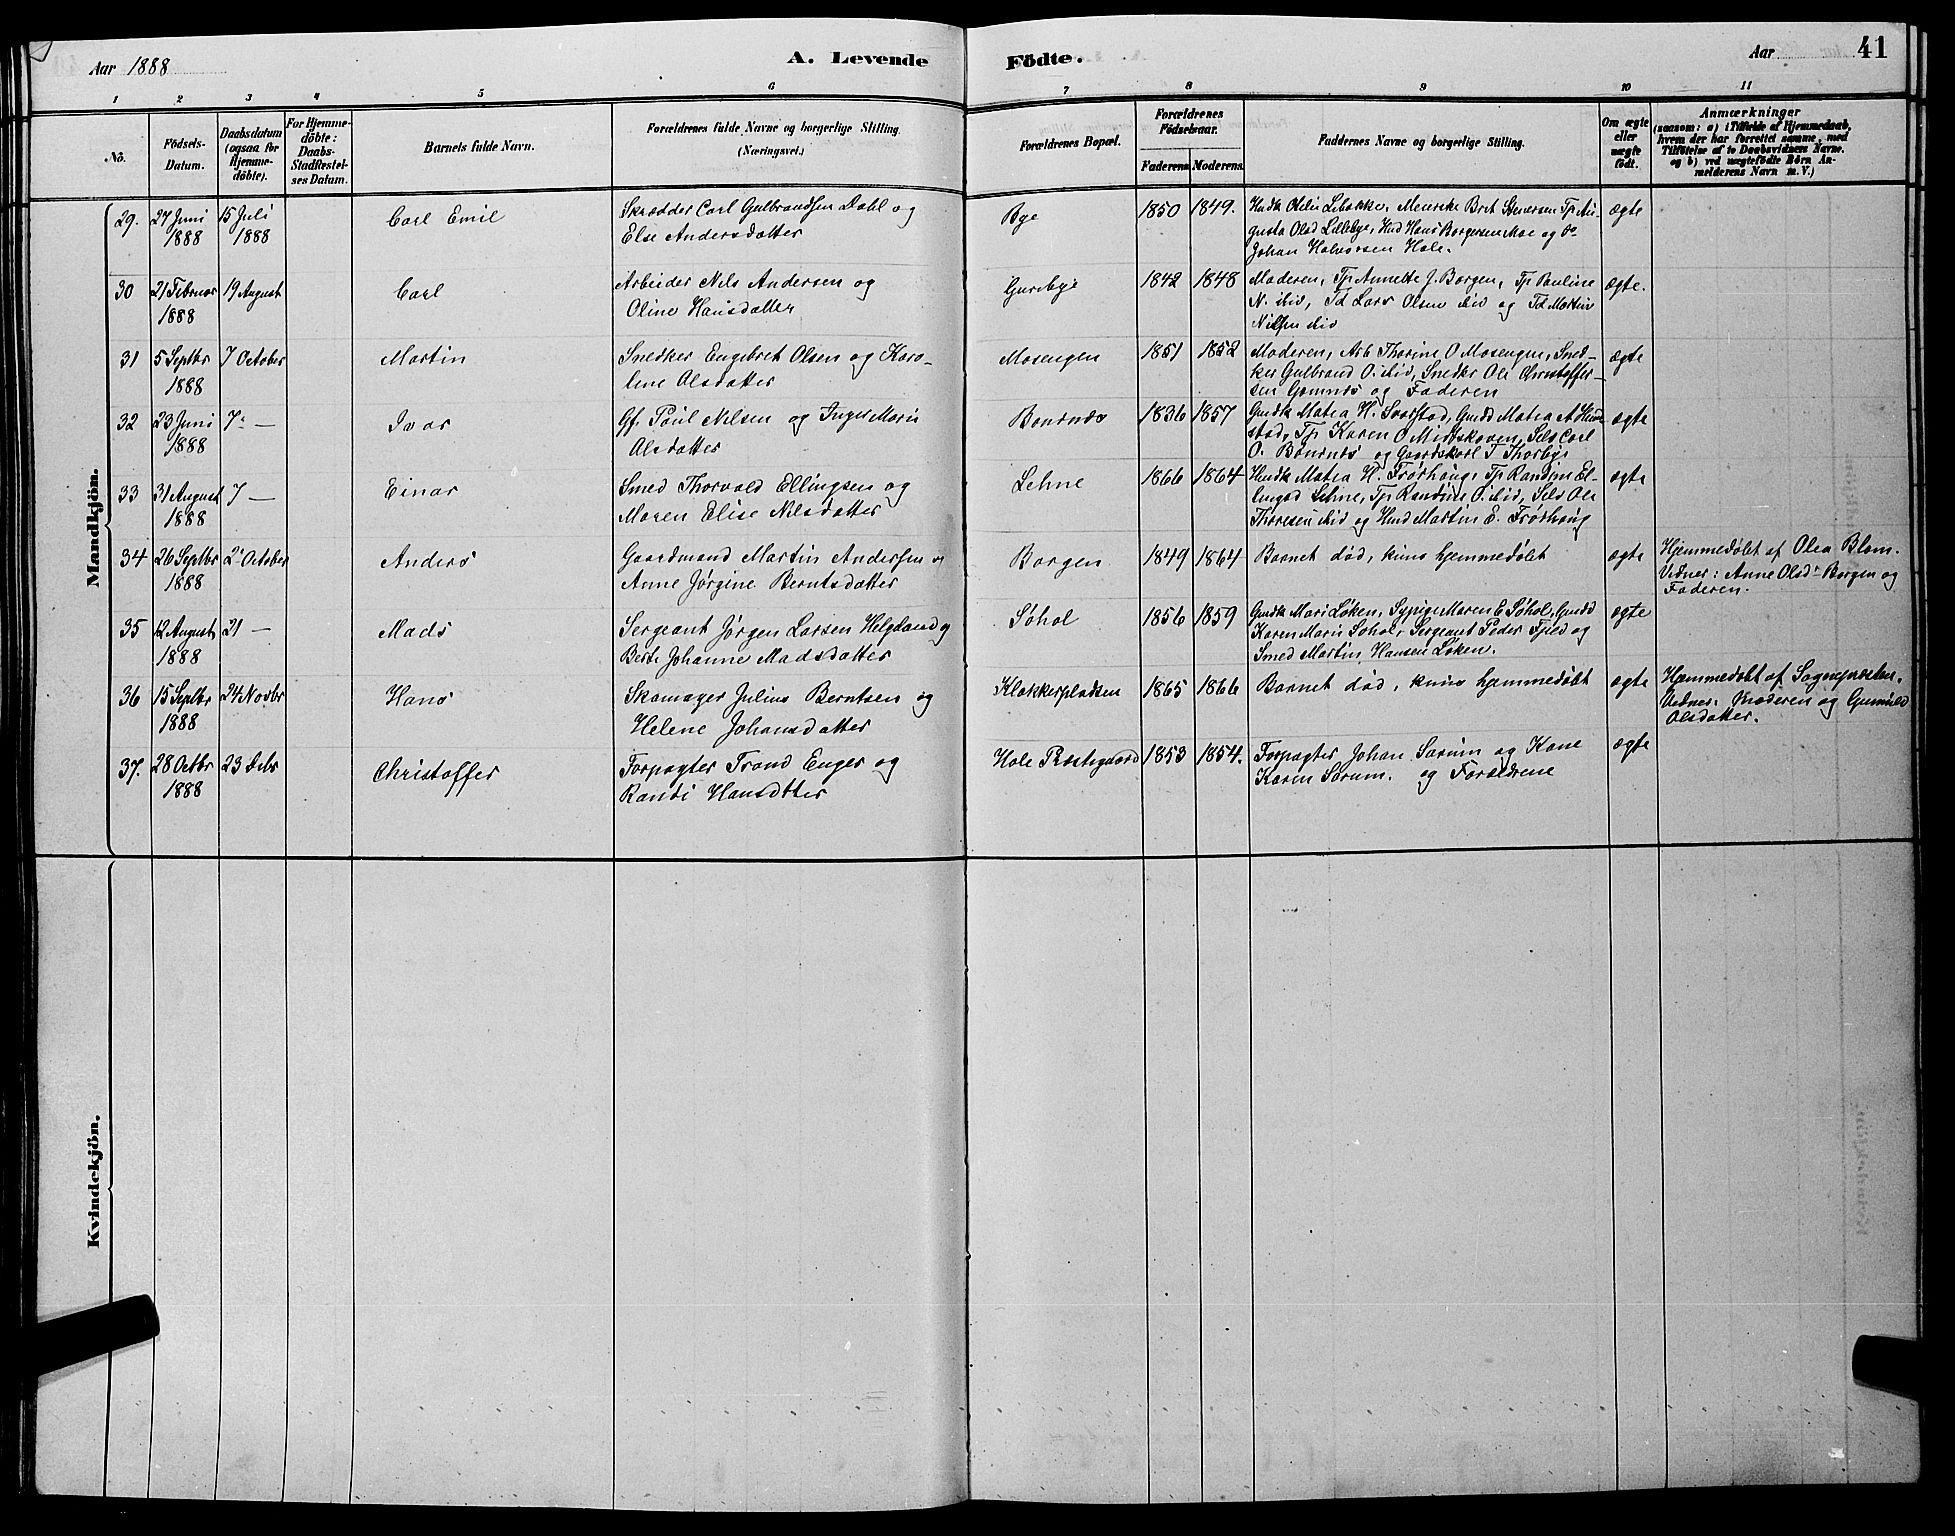 Aar 1888
A. Levende
Födte.
Aar
41
1 2 3 4 5 6 7 8 9 10 11
No.
Födsels-
Datum.
Daabsdatum
(ogsaa for
Hjemme-
döbte).
For Hjemme-
döbte:
Daabs-
Stadfæstel-
ses Datum.
Barnets fulde Navn.
Forældrenes fulde Navne og borgerlige Stilling.
(Næringsvei.)
Forældrenes Bopæl.
Forældrenes
Födselsaar.
Faderens. Moderens.
Faddernes Navne og borgerlige Stilling.
Om ægte
eller
uægte
födt.
Anmærkninger
(saasom: a) i Tilfælde af Hjemmedaab,
hvem der har forrettet samme, med
Tilföielse af to Daabsvidners Navne,
og b) ved uægtefödte Börn An-
melderens Navn m. V.)
Mandkjön.
29. 27 Juni
1888
15 Juli
1888
Carl Emil
Skrædder Carl Gulbrandsen Dahl og
Else Andersdatter
Bye
1850 1849.
Meierske Bret Stenersen Tp. Au-
gusta Olsd Lillebye, Hans Borgersen Moe og
Johan Halvorsen Hole.
ægte
30 21 Februar
1888
19 August
Carl
Arbeider Nils Andersen og
Oline Hansdatter
Gursbye
1842 1848
Moderen, Tp. Annette J. Borgen, Tp Pauline
N. ibid, Td Lars Olsen ibid og Td Martin
Nilsen ibid
ægte.
31 5 Septbr
1888
7 October
Martin
Snedker Engebret Olsen og Karo-
line Olsdatter
Mosengen
1851 1852
Moderen, Arb Thorine O Mosengen, Sned-
ker Gulbrand O. ibid, Snedker Ole Christoffer-
sen Gomnes og Faderen
ægte
32 23 Juni
1888
7de —
Ivar
Gf. Paul Nilsen og Inger Marie
Olsdatter
Bønsnæs
1836 1857
Gmdk Matea H. Svarstad, Gmdd Matea A
stad, Tp Karen O Midtskoven, Selv Carl
O. Bønsnæs og Gaardskarl T Thorbye
ægte
33 31 August
1888
7 —
Einar
Smed Thorvald Ellingsen og
Maren Elise Nilsdatter
Lehne
1866 1864
Husmk Matea H. Frøshaug, Tp. Randine El-
lingsd Lehne, Tp. Randine O. ibid, Selv Ole
Thoresen ibid og Husmd Martin E. Frøshaug
ægte
34 26 Septbr
1888
2 October
Anders
Gaardmand Martin Andersen og
Anne Jørgine Berntsdatter
Borgen
1849 1864
Barnet død, kuns hjemmedøbt
ægte
Hjemmedøbt af Olea Blom.
Vidner: Anne Olsdr Borgen og
Faderen.
35 12 August
1888
21 —
Mads
Sergeant Jørgen Larsen Helgeland og
Berte Johanne Madsdatter
Søhol
1856 1859
Gmdk Mari Løken, Sypige Maren E Søhol, Gmdd
Karen Marie Søhol, Sergeant Peder Fjeld og
Smed Martin Hansen Løken.
ægte
36 15 Septbr
1888
24 Novbr
Hans
Skomager Julius Berntsen og
Helene Johansdatter
Klokkerpladsen
1865 1866
Barnet død, kuns hjemmedøbt
ægte
Hjemmedøbt af Sognepresten.
Vidner: Moderen og Gunhild
Olsdatter.
37. 28 Octbr
1888
23 Debr
Christoffer
Forpagter Trond Enger og
Randi Hansdtter
Hole Præstegaard
1853 1854.
Forpagter Johan Sørum og Kone
Karen Sørum. og Forældrene
ægte
Kvindekjön.